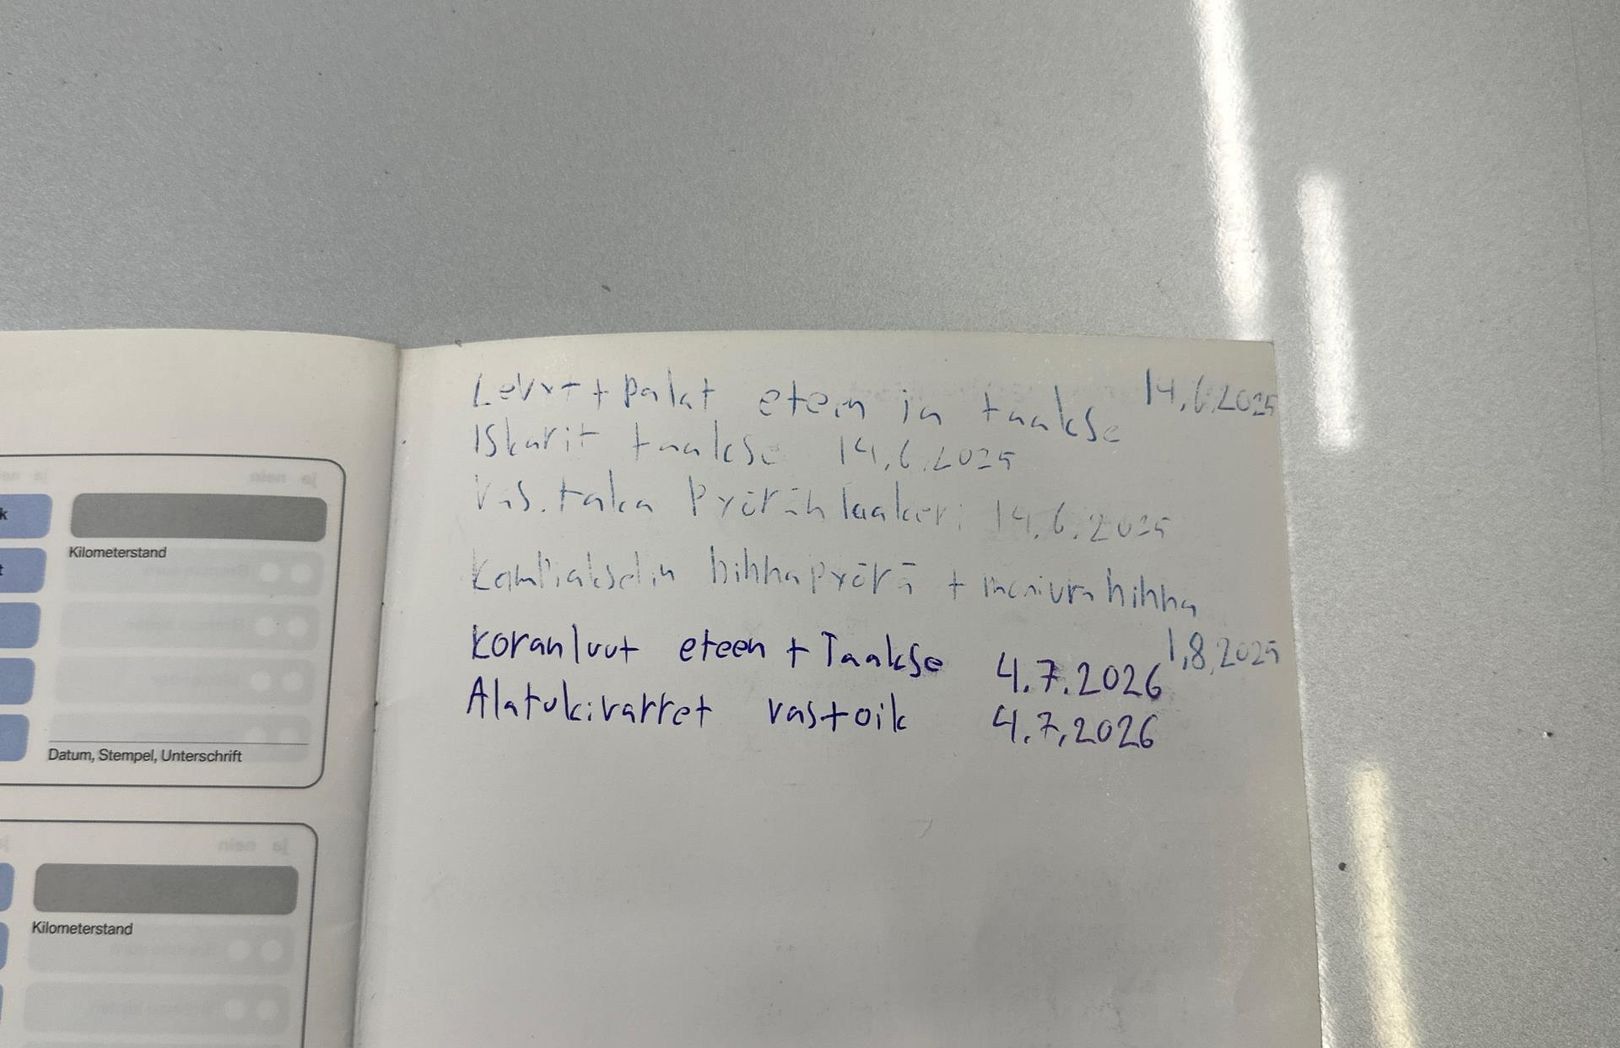 k
Kilometerstand
t
Datum, Stempel, Unterschrift
ja nein
Kilometerstand
Levyt + palat eteen ja taakse 14.6.2025
Iskarit taakse 14.6.2025
Vas. taka Pyöränlaakeri 14.6.2025
Kampiakselin hihnapyörä + moniurahihna
1.8.2025
Koiranluut eteen + Taakse 4.7.2026
Alatukivarret vas+oik 4.7.2026